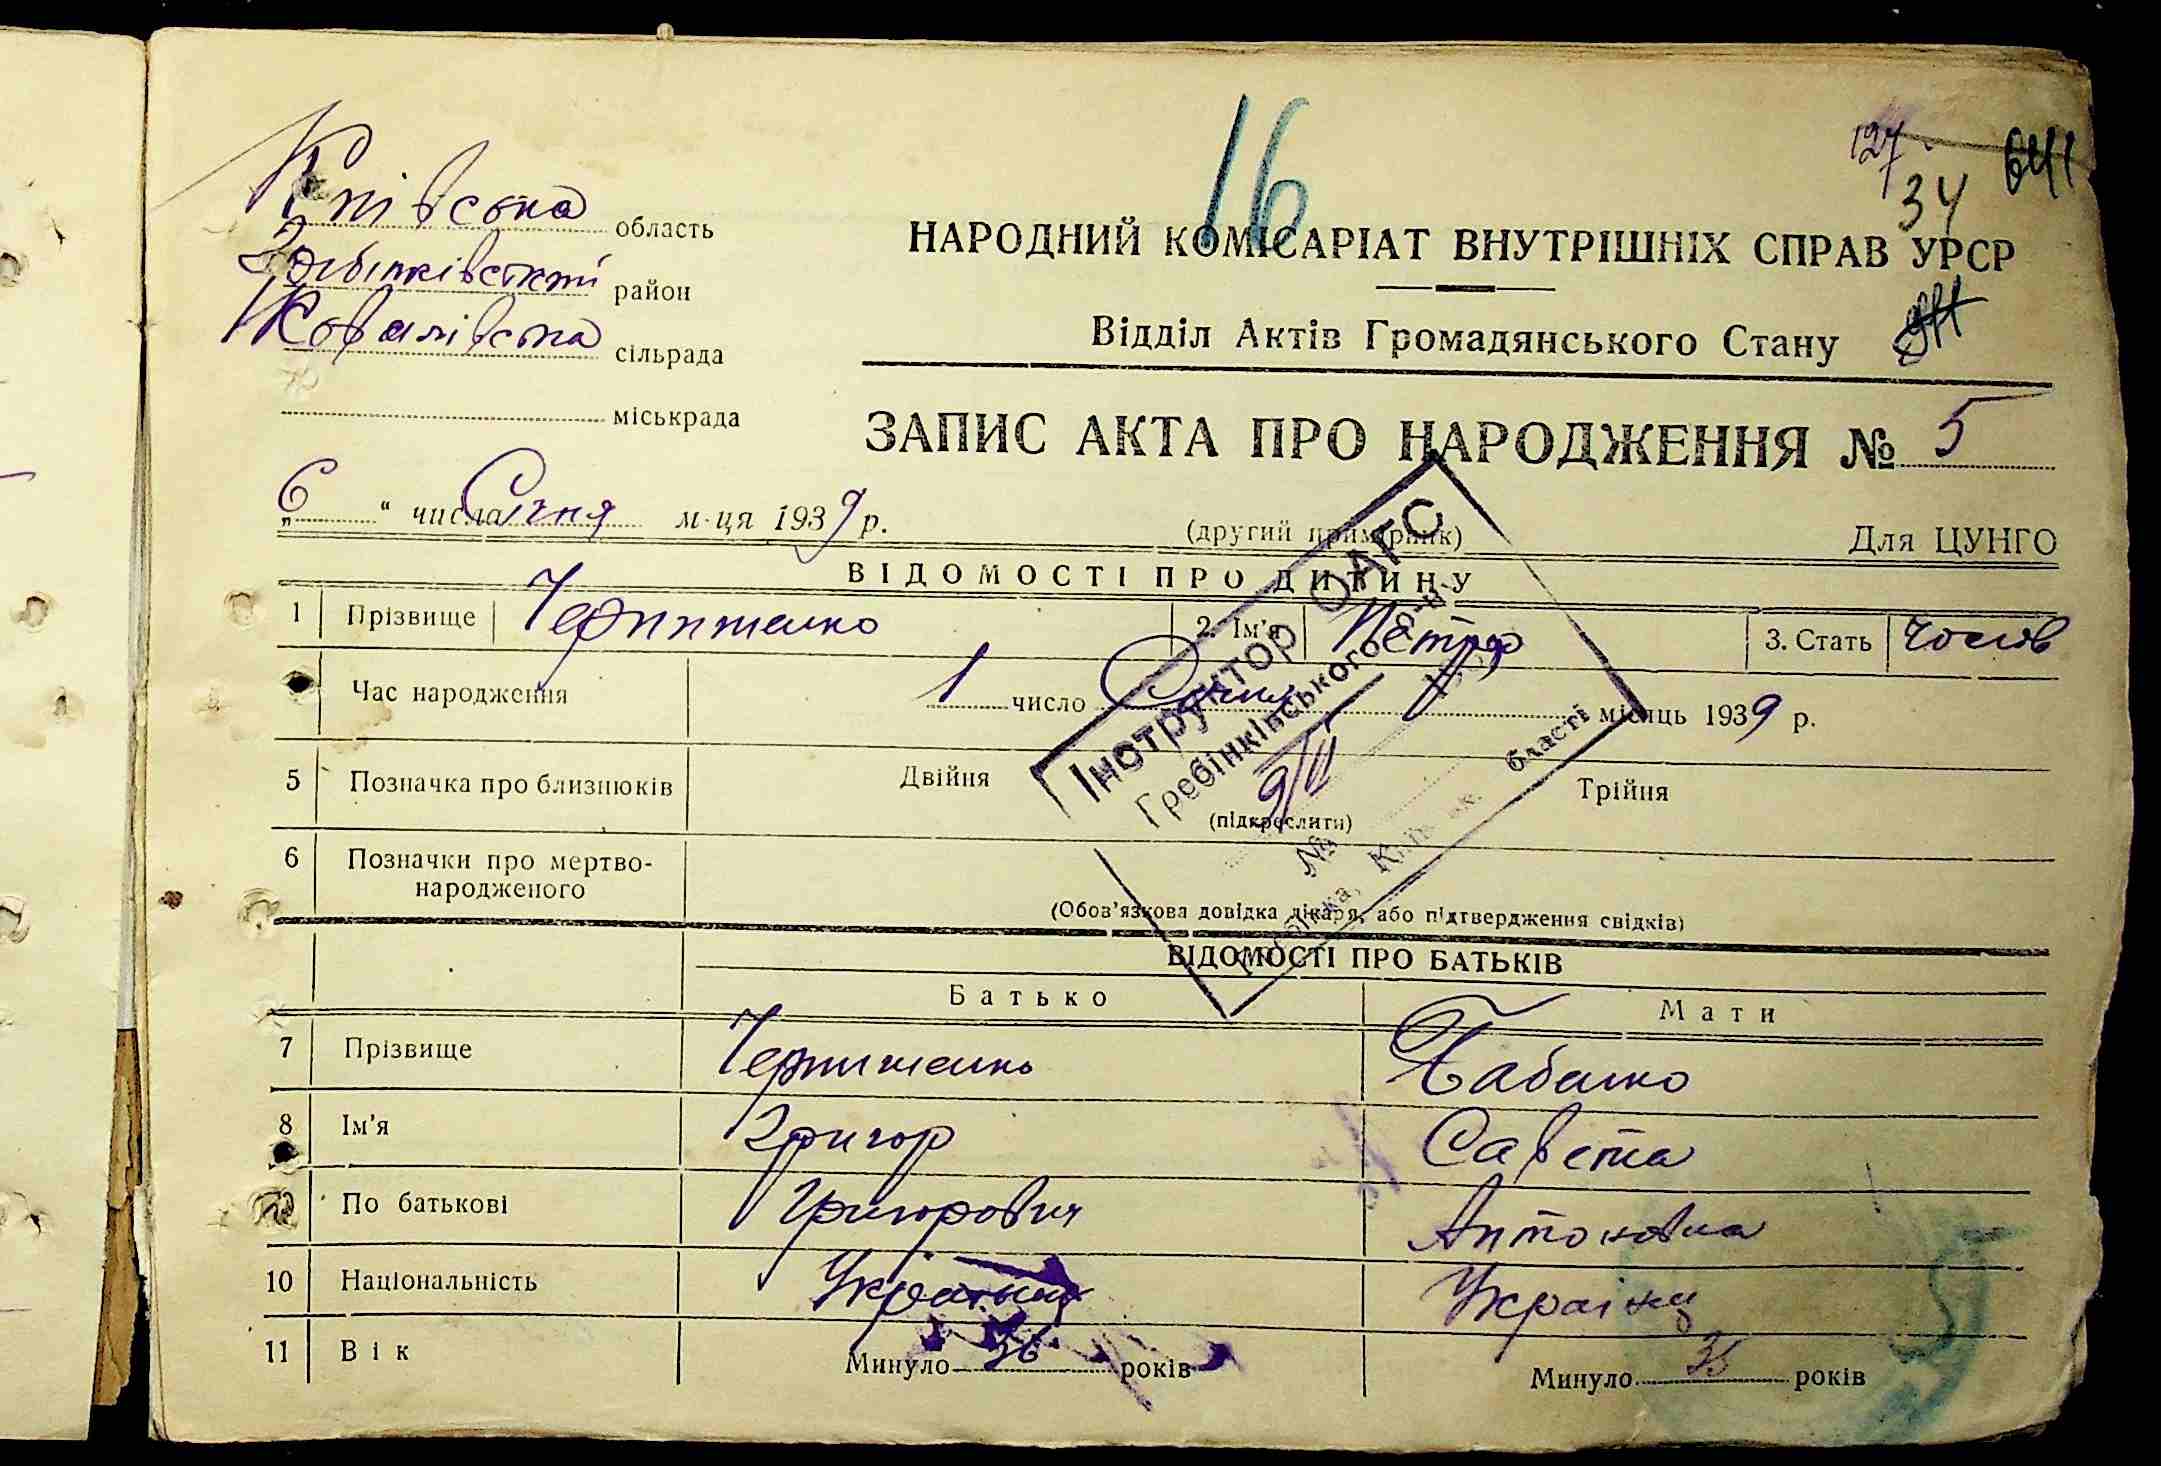 16
127
34
641
Київська область
Гребінківський район
Ковалівська сільрада
міськрада
НАРОДНИЙ КОМІСАРІАТ ВНУТРІШНІХ СПРАВ УРСР
Відділ Актів Громадянського Стану
ЗАПИС АКТА ПРО НАРОДЖЕННЯ № 5
„6“ числа Січня м-ця 1939 р.
(другий примірник)
Для ЦУНГО
Інструктор ОАГС
Гребінківського
9/II
№
області
ВІДОМОСТІ ПРО ДИТИНУ
1 Прізвище 2. Ім'я Петро 3. Стать чолов
Час народження 1 число Січня місяць 1939 р.
5 Позначка про близнюків Двійня Трійня
(підкреслити)
6 Позначки про мертво-
народженого
(Обов'язкова довідка лікаря, або підтвердження свідків)
ВІДОМОСТІ ПРО БАТЬКІВ
Батько Мати
7 Прізвище Бабенко
8 Ім'я Григор Савета
По батькові Григорович Антоновна
10 Національність Українець Українка
11 Вік Минуло 36 років Минуло 35 років